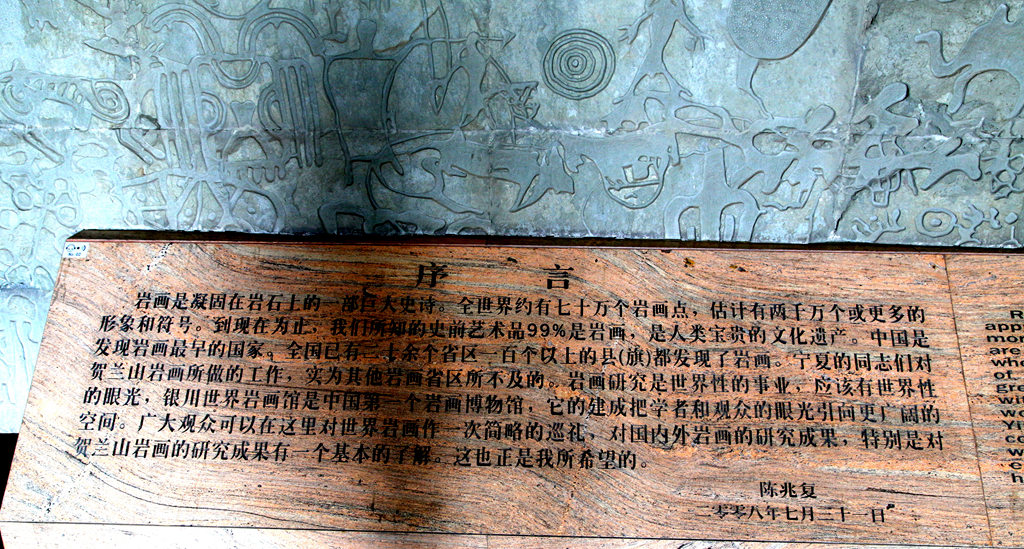 序 言
岩画是凝固在岩石上的一部巨大史诗。全世界约有七十万个岩画点，估计有两千万个或更多的
形象和符号。到现在为止，我们所知的史前艺术品99%是岩画，是人类宝贵的文化遗产。中国是
发现岩画最早的国家。全国已有二十余个省区一百个以上的县(旗)都发现了岩画。宁夏的同志们对
贺兰山岩画所做的工作，实为其他岩画省区所不及的。岩画研究是世界性的事业，应该有世界性
的眼光，银川世界岩画馆是中国第一个岩画博物馆，它的建成把学者和观众的眼光引向更广阔的
空间。广大观众可以在这里对世界岩画作一次简略的巡礼，对国内外岩画的研究成果，特别是对
贺兰山岩画的研究成果有一个基本的了解。这也正是我所希望的。
陈兆复
二零零八年七月二十一日